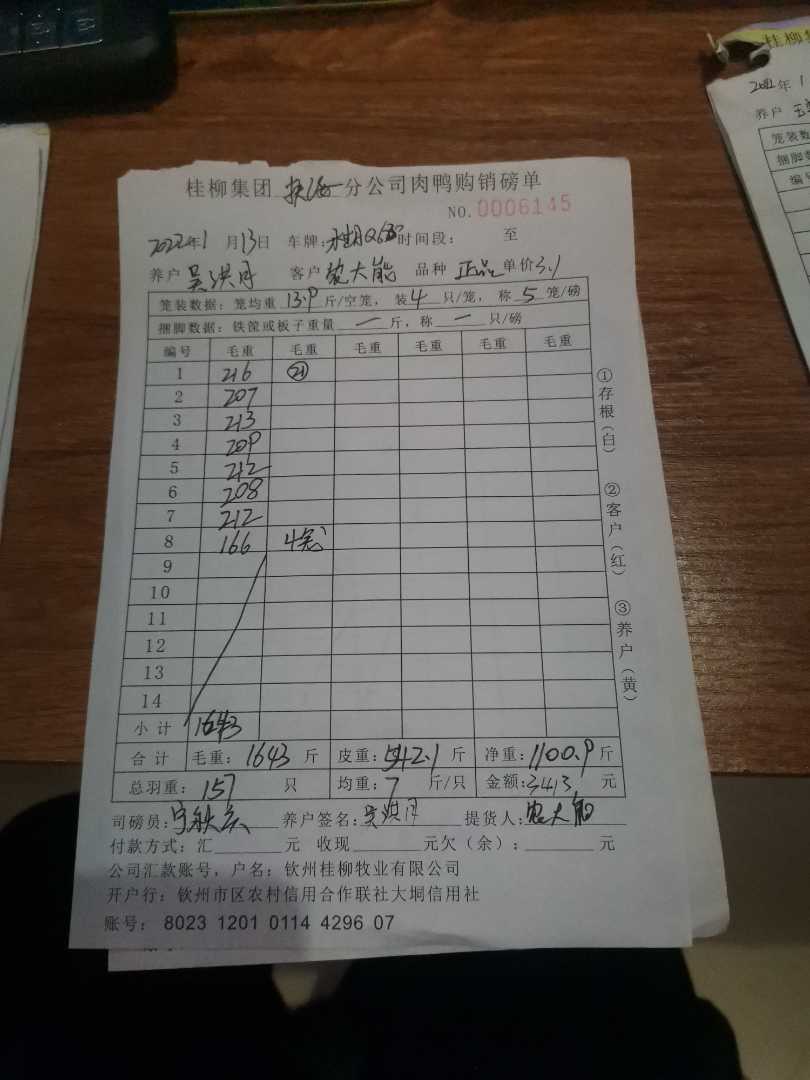 桂柳集团 分公司肉鸭购销磅单
NO.0006145
2022年1月13日 车牌: 时间段: 至
养户 吴洪月 客户 农大能 品种 正品 单价 3.1
笼装数据:笼均重 13.9 斤/空笼,装 4 只/笼,称 5 笼/磅
捆脚数据:铁筐或板子重量 一 斤,称 一 只/磅
编号 毛重 毛重 毛重 毛重 毛重 毛重
1 216 21
2 207
3 213
4 209
5 212
6 208
7 212
8 166 4笼
9
10
11
12
13
14
小计 1643
合计 毛重:1643 斤 皮重:542.1 斤 净重:1100.9 斤
总羽重:157 只 均重:7 斤/只 金额:3413 元
司磅员: 养户签名:吴洪月 提货人:农大能
付款方式:汇 元 收现 元欠(余): 元
公司汇款账号,户名:钦州桂柳牧业有限公司
开户行:钦州市区农村信用合作联社大垌信用社
账号: 8023 1201 0114 4296 07
①存根(白)
②客户(红)
③养户(黄)
桂柳集
2022年1
养户
笼装数
捆脚数
编号